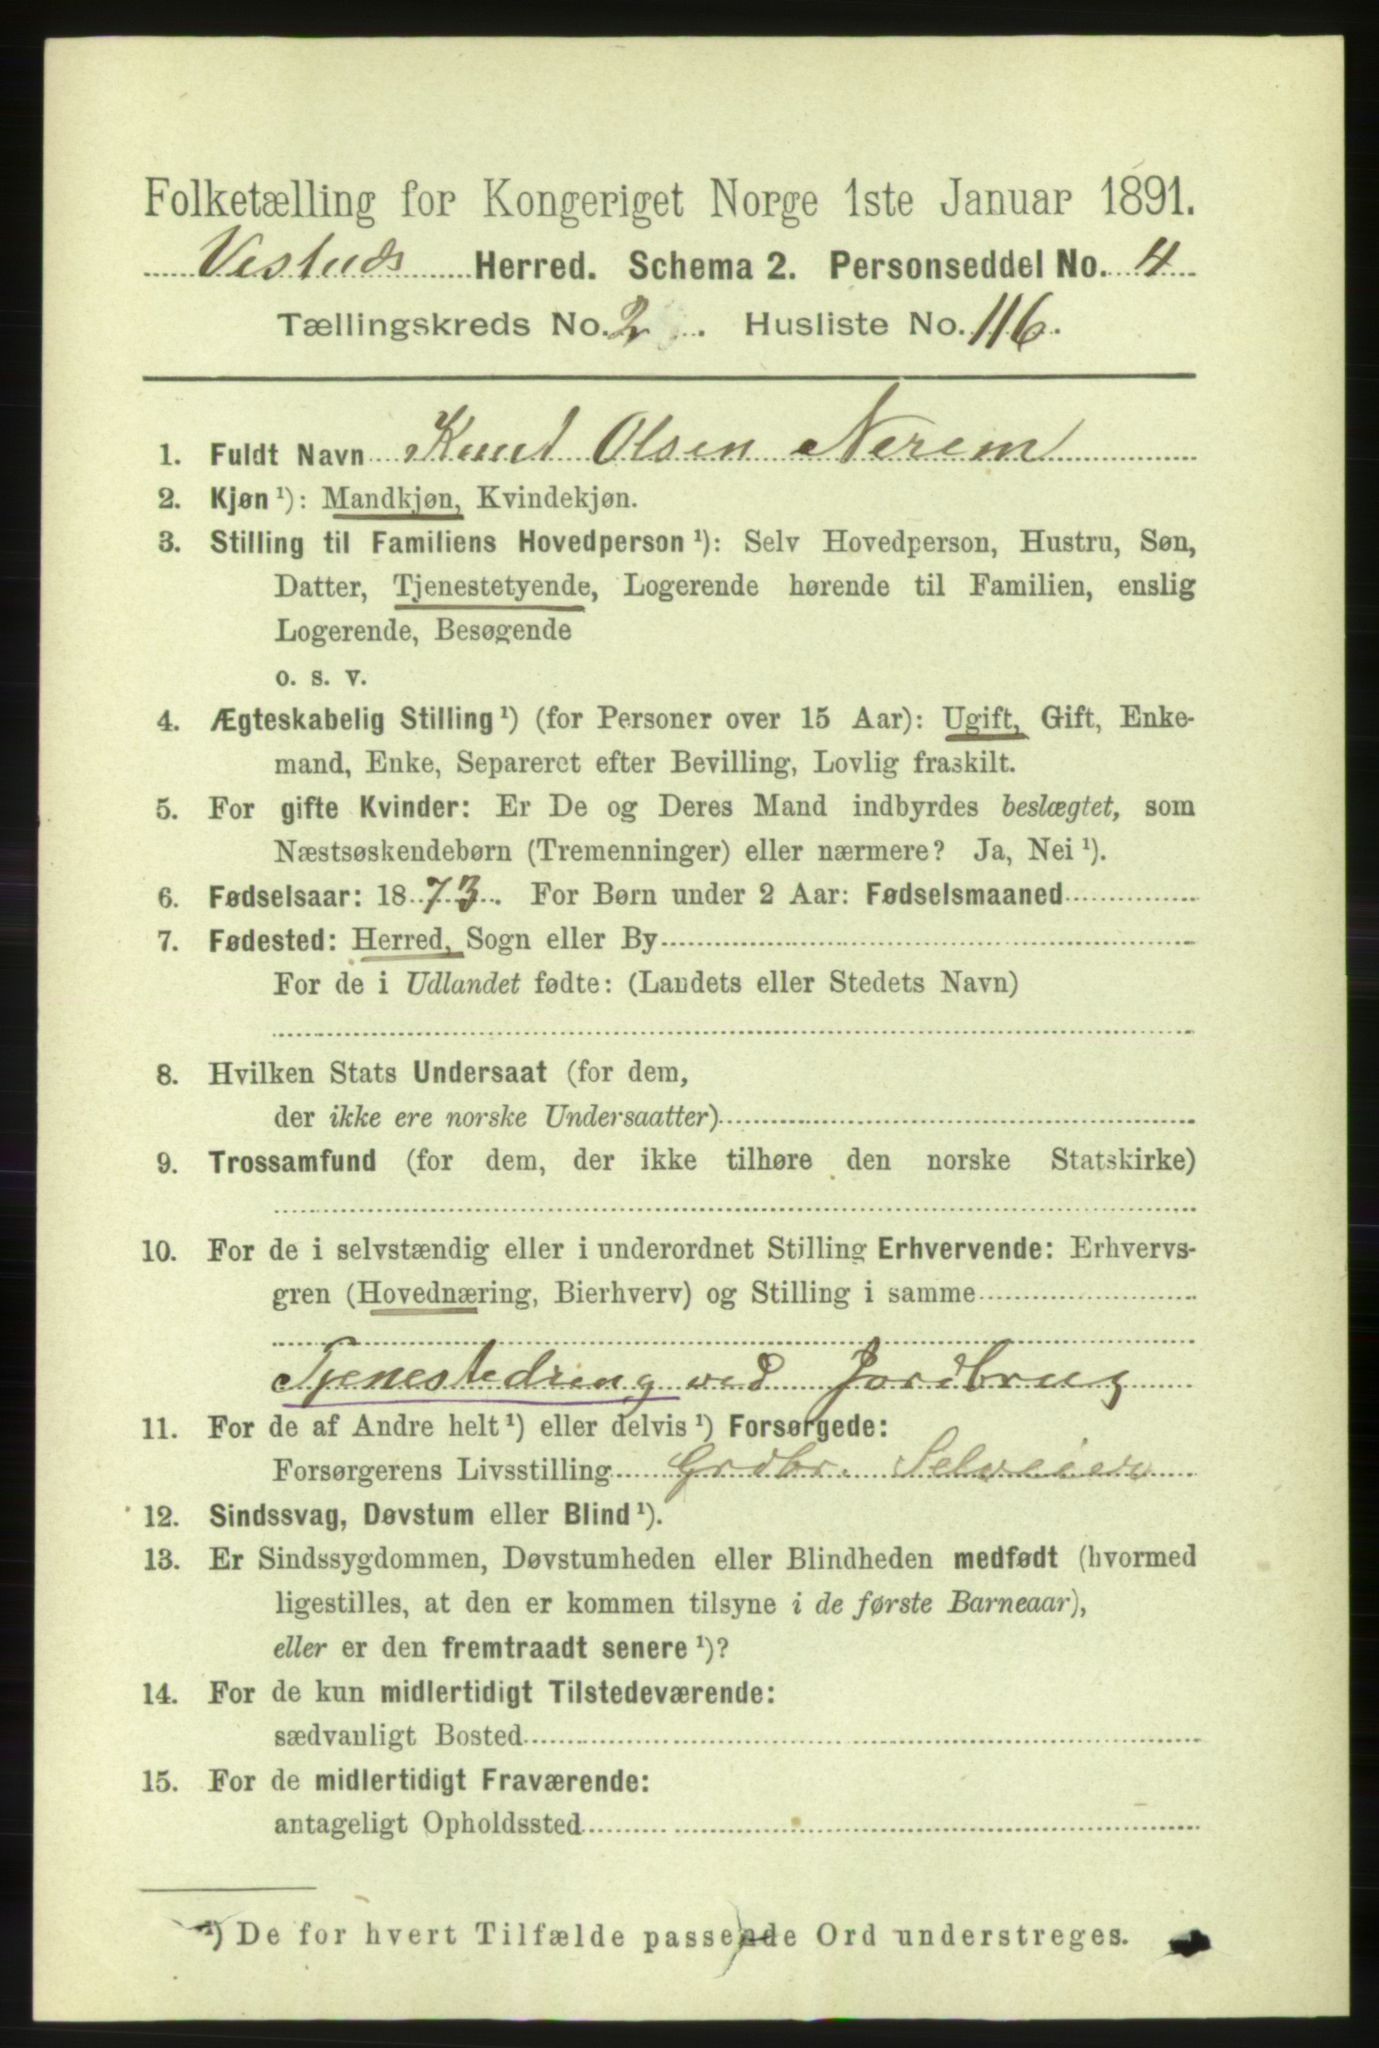 Folketælling for Kongeriget Norge 1ste Januar 1891.
Vestnæs Herred. Schema 2. Personseddel No. 4
Tællingskreds No. 2. Husliste No. 116.
1. Fuldt Navn Knud Olsen Nerem
2. Kjøn ¹): Mandkjøn, Kvindekjøn.
3. Stilling til Familiens Hovedperson ¹): Selv Hovedperson, Hustru, Søn,
Datter, Tjenestetyende, Logerende hørende til Familien, enslig
Logerende, Besøgende
o. s. v.
4. Ægteskabelig Stilling ¹) (for Personer over 15 Aar): Ugift, Gift, Enke-
mand, Enke, Separeret efter Bevilling, Lovlig fraskilt.
5. For gifte Kvinder: Er De og Deres Mand indbyrdes beslægtet, som
Næstsøskendebørn (Tremenninger) eller nærmere? Ja, Nei ¹).
6. Fødselsaar: 1873. For Børn under 2 Aar: Fødselsmaaned
7. Fødested: Herred, Sogn eller By
For de i Udlandet fødte: (Landets eller Stedets Navn)
8. Hvilken Stats Undersaat (for dem,
der ikke ere norske Undersaatter)
9. Trossamfund (for dem, der ikke tilhøre den norske Statskirke)
10. For de i selvstændig eller i underordnet Stilling Erhvervende: Erhvervs-
gren (Hovednæring, Bierhverv) og Stilling i samme
Tjenestedreng ved Jordbrug
11. For de af Andre helt ¹) eller delvis ¹) Forsørgede:
Forsørgerens Livsstilling Grdbr. Selveier
12. Sindssvag, Døvstum eller Blind ¹).
13. Er Sindssygdommen, Døvstumheden eller Blindheden medfødt (hvormed
ligestilles, at den er kommen tilsyne i de første Barneaar),
eller er den fremtraadt senere ¹)?
14. For de kun midlertidigt Tilstedeværende:
sædvanligt Bosted
15. For de midlertidigt Fraværende:
antageligt Opholdssted
¹) De for hvert Tilfælde passende Ord understreges.